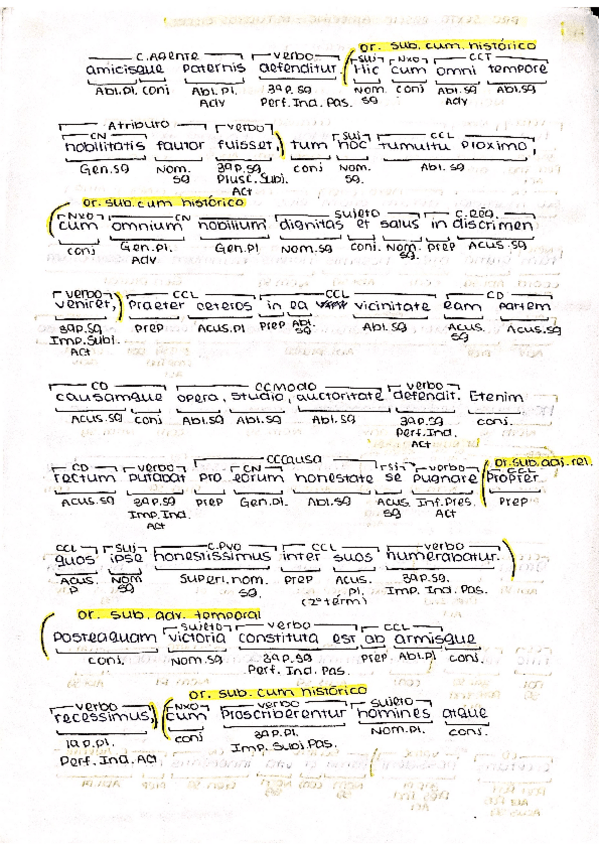 or. sub. cum. histórico
C.Agente verbo suj Nxo CCT
amicisque paternis defenditur. Hic cum omni tempore
Abl.pl. conj Abl.pl. 3ªp.sg Nom. conj Abl.sg Abl.sg
Adv Perf.Ind.Pas. sg Adv
Atributo verbo suj CCL
CN
nobilitatis fautor fuisset, tum hoc tumultu proximo,
Gen.sg Nom. 3ªp.sg conj Nom. Abl.sg
sg Plusc.Subj. sg
Act
or. sub. cum histórico
Nxo CN sujeto C.Rég.
cum omnium nobilium dignitas et salus in discrimen
conj Gen.pl. Gen.pl Nom.sg conj. Nom. prep Acus.sg
Adv sg
verbo CCL CCL CD
veniret, Praeter ceteros in ea vicinitate eam partem
3ªp.sg prep Acus.pl prep Abl. Abl.sg Acus. Acus.sg
Imp.Subj. sg sg
Act
CD CCModo verbo
causamque opera, studio, auctoritate defendit. Etenim
Acus.sg conj Abl.sg Abl.sg Abl.sg 3ªp.sg conj.
Perf.Ind.
Act
CCCausa or.sub.adj.rel.
CD verbo CN suj verbo CCL
rectum putabat pro eorum honestate se pugnare Propter
Acus.sg 3ªp.sg prep Gen.pl Abl.sg Acus. Inf.Pres. prep
Imp.Ind. sg Act
Act
CCL suj C.Pvo CCL verbo
quos ipse honestissimus inter suos numerabatur.
Acus. Nom Superl.nom. prep Acus. 3ªp.sg
p sg sg. pl. Imp. Ind. Pas.
(2º térm)
or. sub. adv. temporal
sujeto verbo CCL
Posteaquam victoria constituta est ab armisque
conj. Nom.sg 3ªp.sg prep Abl.pl conj.
Perf. Ind. Pas.
or. sub. cum histórico
verbo Nxo verbo sujeto
recessimus, cum Proscriberentur homines atque
1ªp.pl. conj 3ªp.pl. Nom.pl. conj.
Perf.Ind.Act Imp. Subj.Pas.